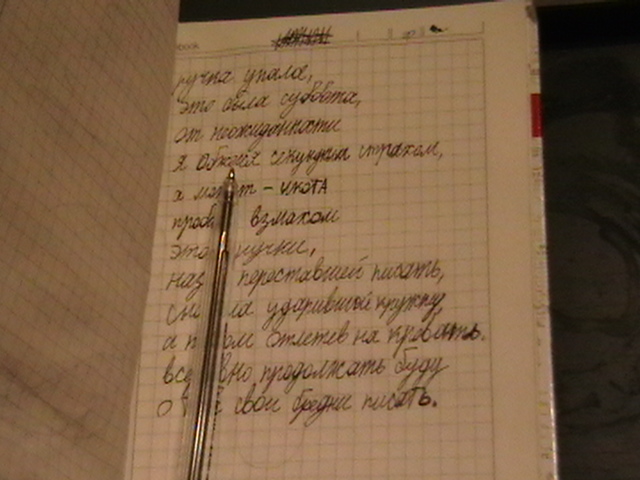 ручка упала,
это была суббота,
от неожиданности
я секундным страхом,
а может - икота
взмахом
это ручки,
переставшей писать,
ударившей кружку,
а отлетев на кровать.
всё продолжать буду
свои бредни писать.